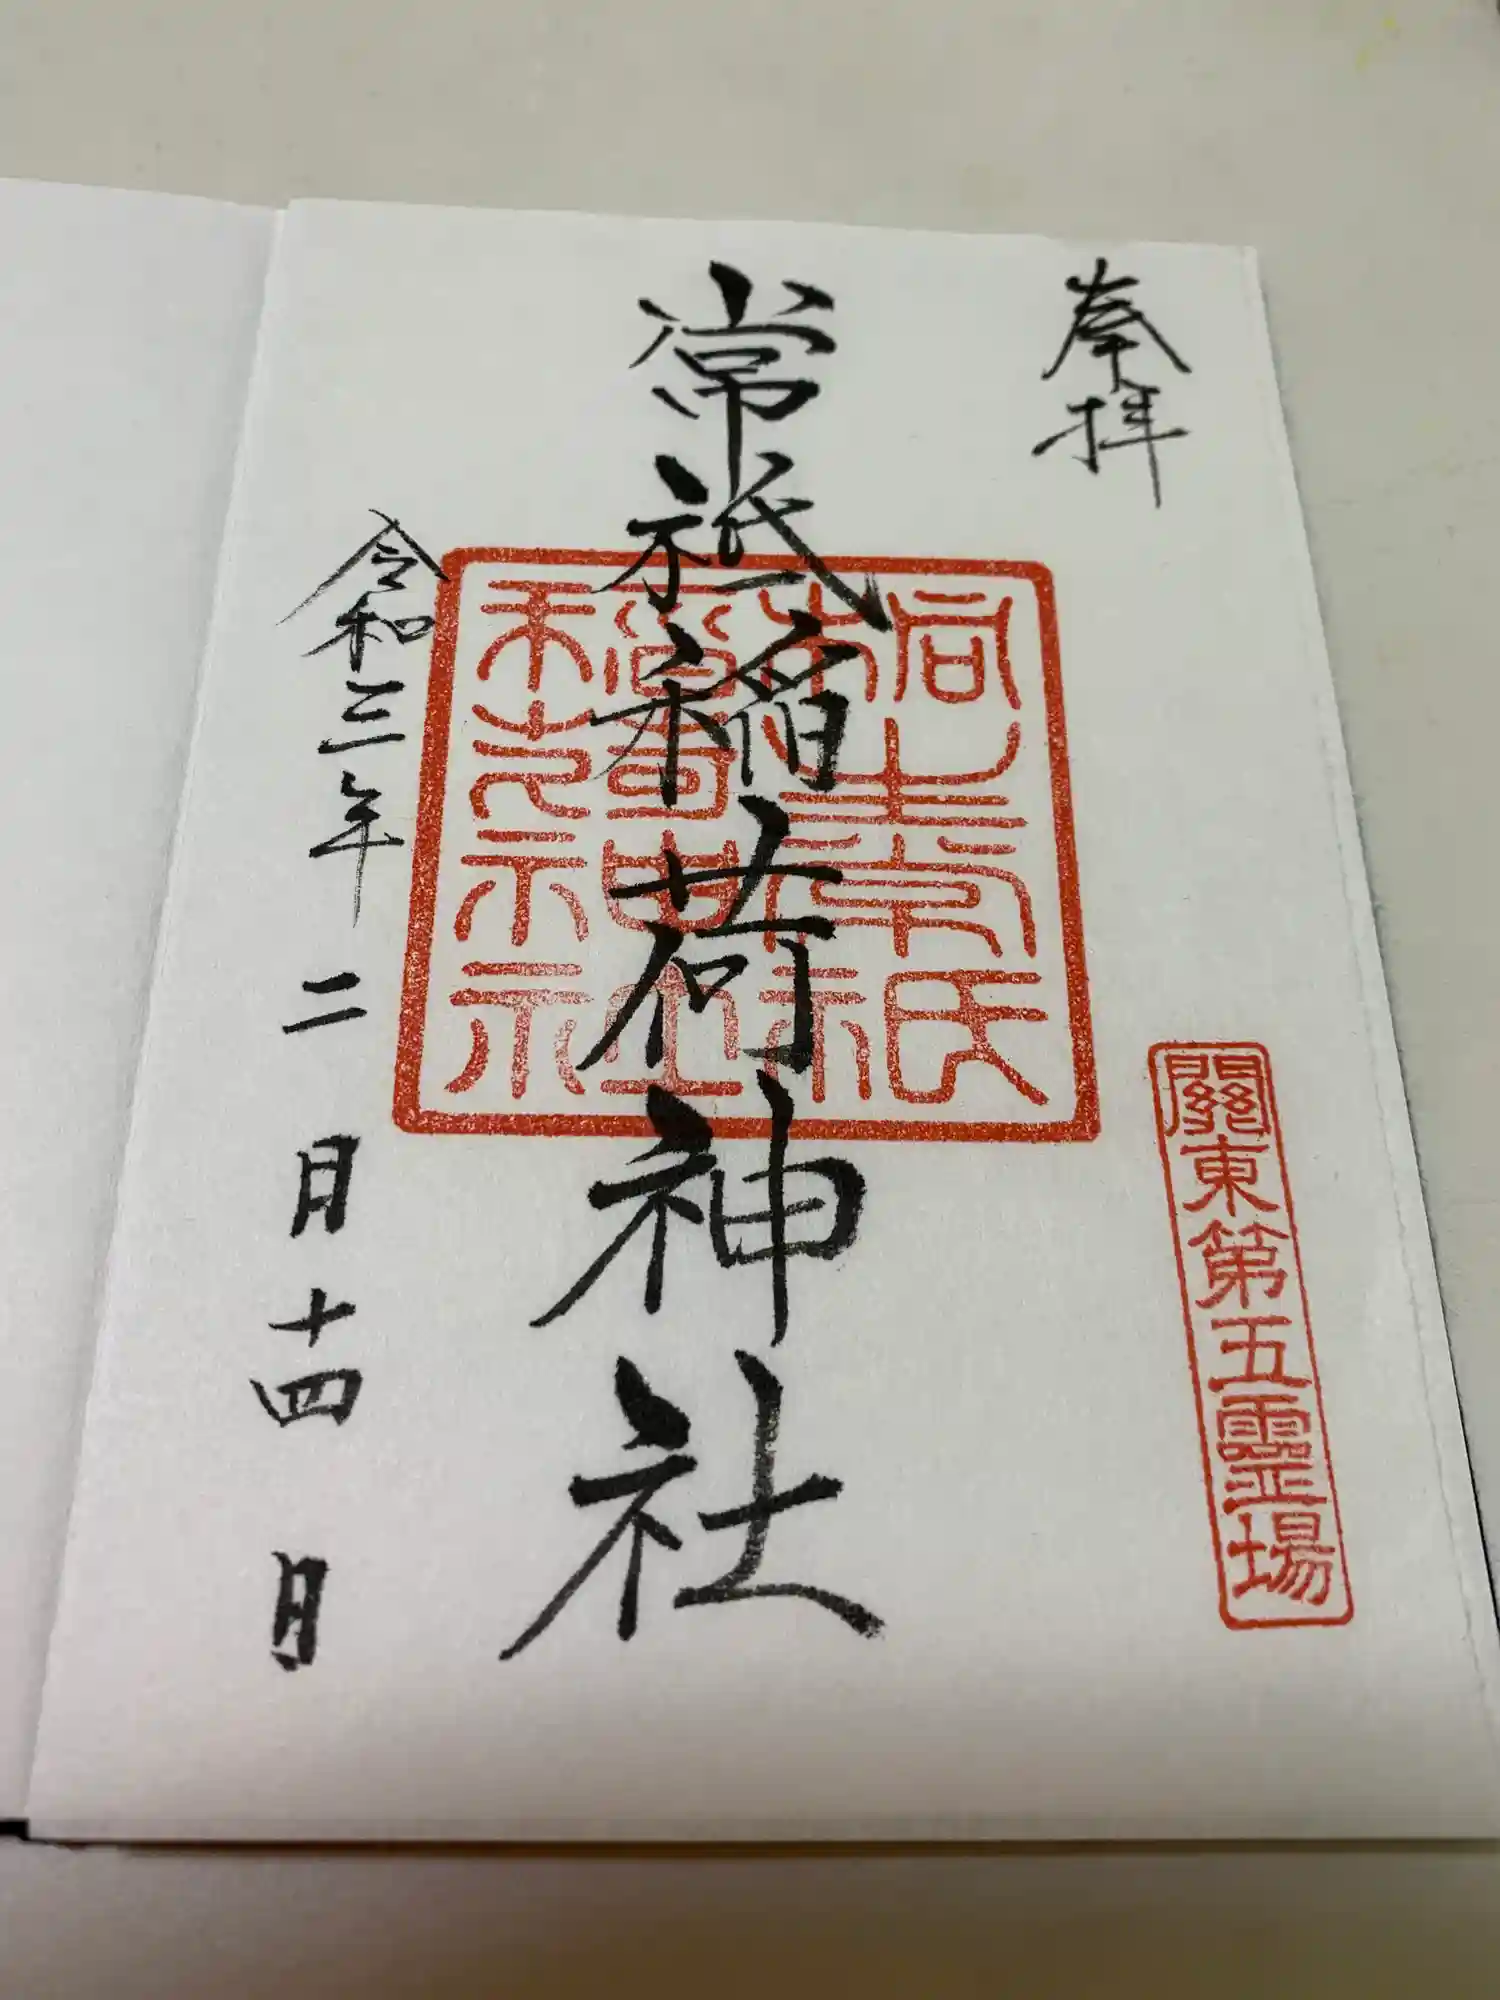 奉拝
關東第五霊場
常祇稲荷神社
令和三年二月十四日